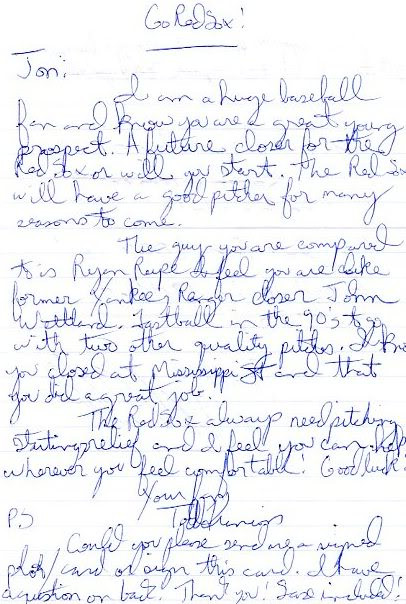 Go Red Sox!
Jon:
I am a huge baseball
fan and know you are a great young
prospect. A future closer for the
Red Sox or will you start. The Red Sox
will have a good pitcher for many
seasons to come.
The guy you are compared
to is Ryan I feel you are like
former Yankee, Ranger closer John
Wetteland. Fastball in the 90's to go
with two other quality pitches. I know
you closed at Mississippi St and that
you did a great job.
The Red Sox always need pitching
Starting relief and I feel you can help
wherever you feel comfortable! Good luck!
Your fan
P.S
Could you please send me a signed
photo/card or sign this card. I have
a question on back. Thank you! Sase included!